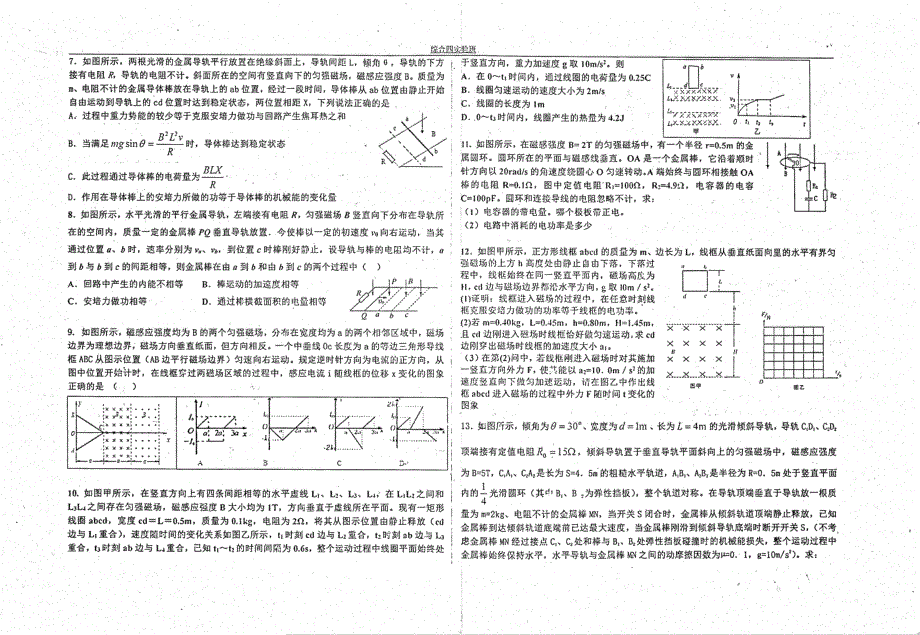 综合四实验班
7. 如图所示，两根光滑的金属导轨平行放置在绝缘斜面上，导轨间距 L，倾角 θ，导轨的下方
接有电阻 R，导轨的电阻不计。斜面所在的空间有竖直向下的匀强磁场，磁感应强度 B。质量为
m、电阻不计的金属导体棒放在导轨上的 ab 位置，经过一段时间，导体棒从 ab 位置由静止开始
自由运动到导轨上的 cd 位置时达到稳定状态，两位置相距 X，下列说法正确的是
A．过程中重力势能的较少等于克服安培力做功与回路产生焦耳热之和
B．当满足 mg sin θ = B²L²v/R 时，导体棒达到稳定状态
C．此过程通过导体棒的电荷量为 BLX/R
D．作用在导体棒上的安培力所做的功等于导体棒的机械能的变化量
8. 如图所示，水平光滑的平行金属导轨，左端接有电阻 R，匀强磁场 B 竖直向下分布在导轨所
在的空间内，质量一定的金属棒 PQ 垂直导轨放置．今使棒以一定的初速度 v₀ 向右运动，当其
通过位置 a、b 时，速率分别为 vₐ、v_b，到位置 c 时棒刚好静止，设导轨与棒的电阻均不计，a
到 b 与 b 到 c 的间距相等，则金属棒在由 a 到 b 和由 b 到 c 的两个过程中（ ）
A．回路中产生的内能不相等 B．棒运动的加速度相等
C．安培力做功相等 D．通过棒横截面积的电量相等
9. 如图所示，磁感应强度均为 B 的两个匀强磁场，分布在宽度均为 a 的两个相邻区域中，磁场
边界为理想边界，磁场方向垂直纸面，但方向相反。一个中垂线 Oc 长度为 a 的等边三角形导线
框 ABC 从图示位置（AB 边平行磁场边界）匀速向右运动。规定逆时针方向为电流的正方向，从
图中位置开始计时，在线框穿过两磁场区域的过程中，感应电流 i 随线框的位移 x 变化的图象
正确的是（ ）
A B C D
10. 如图甲所示，在竖直方向上有四条间距相等的水平虚线 L₁、L₂、L₃、L₄，在 L₁L₂ 之间和
L₃L₄ 之间存在匀强磁场，磁感应强度 B 大小均为 1T，方向垂直于虚线所在平面。现有一矩形
线圈 abcd，宽度 cd＝L＝0.5m，质量为 0.1kg，电阻为 2Ω，将其从图示位置由静止释放（cd
边与 L₁ 重合），速度随时间的变化关系如图乙所示，t₁ 时刻 cd 边与 L₂ 重合，t₂ 时刻 ab 边与 L₃
重合，t₃ 时刻 ab 边与 L₄ 重合，已知 t₁～t₂ 的时间间隔为 0.6s，整个运动过程中线圈平面始终处
于竖直方向，重力加速度 g 取 10m/s²。则
A．在 0～t₁ 时间内，通过线圈的电荷量为 0.25C
B．线圈匀速运动的速度大小为 2m/s
C．线圈的长度为 1m
D．0～t₃ 时间内，线圈产生的热量为 4.2J
甲 乙
11. 如图所示，在磁感强度 B= 2T 的匀强磁场中，有一个半径 r=0.5m 的金
属圆环。圆环所在的平面与磁感线垂直。OA 是一个金属棒，它沿着顺时
针方向以 20rad/s 的角速度绕圆心 O 匀速转动。A 端始终与圆环相接触 OA
棒的电阻 R=0.1Ω，图中定值电阻 R₁=100Ω，R₂=4.9Ω，电容器的电容
C=100pF。圆环和连接导线的电阻忽略不计，求：
（1）电容器的带电量，哪个极板带正电。
（2）电路中消耗的电功率是多少
12. 如图甲所示，正方形线框 abcd 的质量为 m、边长为 L，线框从垂直纸面向里的水平有界匀
强磁场的上方 h 高度处由静止自由下落，下落过
程中，线框始终在同一竖直平面内，磁场高度为
H，cd 边与磁场边界都沿水平方向，g 取 10m / s²。
(1)证明：线框进入磁场的过程中，在任意时刻线
框克服安培力做功的功率等于线框的电功率。
(2)若 m=0.40kg，L=0.45m，h=0.80m，H=1.45m，
且 cd 边刚进入磁场时线框恰好做匀速运动，求 cd
边刚穿出磁场时线框的加速度大小 a₁。
（3）在第(2)问中，若线框刚进入磁场时对其施加
一竖直方向外力 F，使其能以 a₂=10．0m / s² 的加
速度竖直向下做匀加速运动，请在图乙中作出线
框 abcd 进入磁场的过程中外力 F 随时间 t 变化的
图象
图甲 图乙
13. 如图所示，倾角为 θ = 30°、宽度为 d = 1m、长为 L = 4m 的光滑倾斜导轨，导轨 C₁D₁、C₂D₂
顶端接有定值电阻 R₀ = 15Ω，倾斜导轨置于垂直导轨平面斜向上的匀强磁场中，磁感应强度
为 B=5T，C₁A₁、C₂A₂ 是长为 S=4．5m 的粗糙水平轨道，A₁B₁、A₂B₂ 是半径为 R=0．5m 处于竖直平面
内的 1/4 光滑圆环（其中 B₁、B₂ 为弹性挡板），整个轨道对称。在导轨顶端垂直于导轨放一根质
量为 m=2kg、电阻不计的金属棒 MN，当开关 S 闭合时，金属棒从倾斜轨道顶端静止释放，已知
金属棒到达倾斜轨道底端前已达最大速度，当金属棒刚滑到倾斜导轨底端时断开开关 S，（不考
虑金属棒 MN 经过接点 C₁、C₂ 处和棒与 B₁、B₂ 处弹性挡板碰撞时的机械能损失，整个运动过程中
金属棒始终保持水平，水平导轨与金属棒 MN 之间的动摩擦因数为 μ=0．1，g=10m/s²）。求：